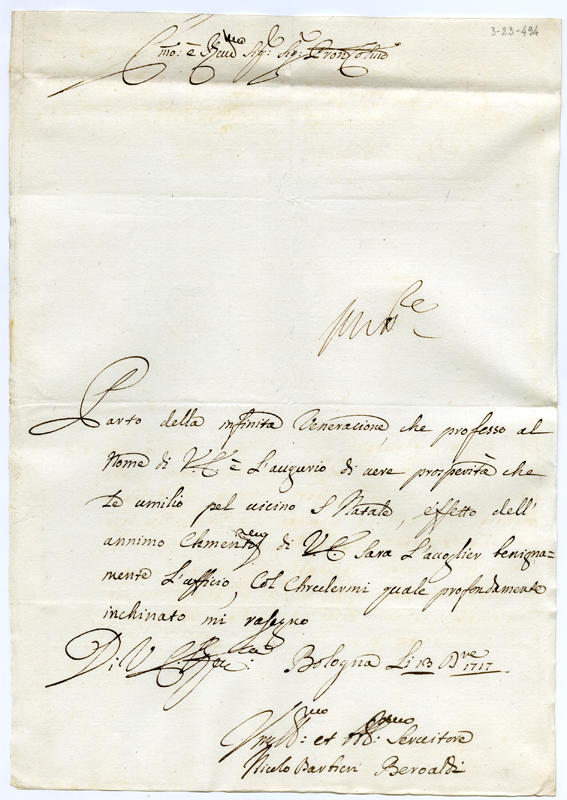 3-23-494
Emo: è Rmo Sig: Sig: Pron Colmo
Parto della infinita Veneracione, che professo al
Nome di VE è L'augurio di vere prosperità che
Le umilio pel vicino S Natale, effetto dell'
annimo di VE Sara L'acoglier benigna=
mente L'ufficio, Col Chredermi quale profondamente
inchinato mi rasegno
Di V E Bologna Li 13 Dbre 1717
et Servitore
Nicolo Barbieri Beroaldi